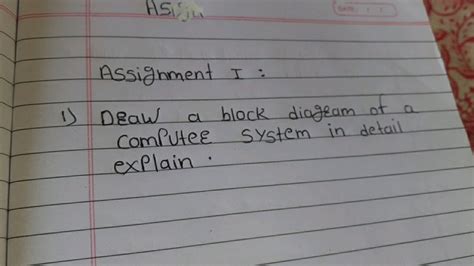 Assignment I :
1) Draw a block diagram of a
computer system in detail
explain .
DATE: / /